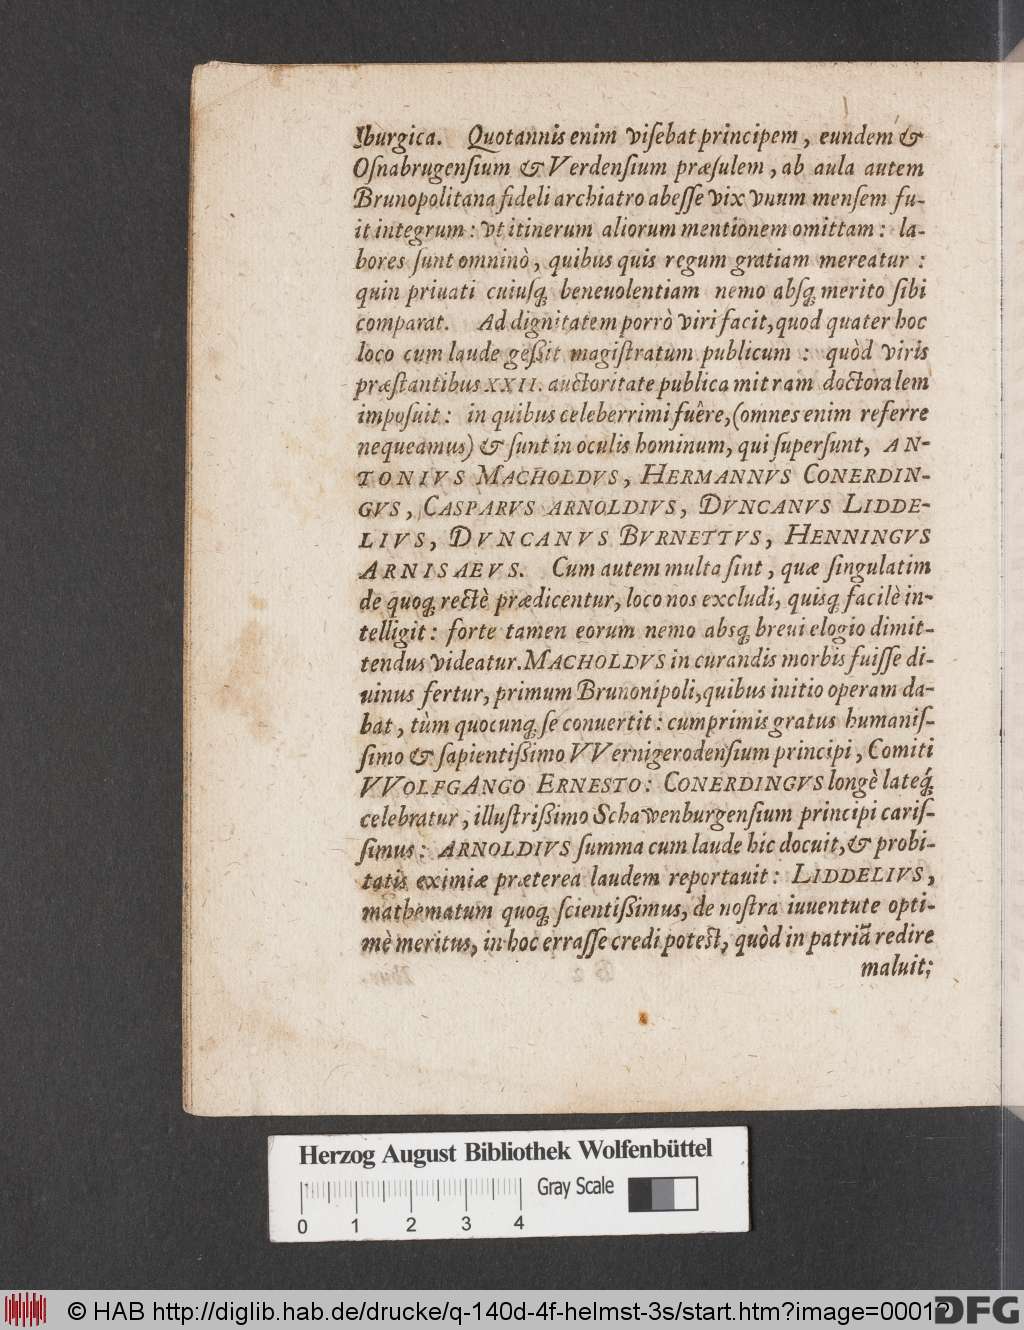 Iburgica. Quotannis enim viſebat principem, eundem &
Oſnabrugenſium & Verdenſium præſulem, ab aula autem
Brunopolitana fideli archiatro abeſſe vix vnum menſem fu-
it integrum: vt itinerum aliorum mentionem omittam: la-
bores ſunt omninò, quibus quis regum gratiam mereatur:
quin priuati cuiuſq́ beneuolentiam nemo abſq́ merito ſibi
comparat. Ad dignitatem porrò viri facit, quod quater hoc
loco cum laude geßit magiſtratum publicum: quòd viris
præſtantibus XXII. auctoritate publica mitram doctoralem
impoſuit: in quibus celeberrimi fuêre, (omnes enim referre
nequeamus) & ſunt in oculis hominum, qui ſuperſunt, AN-
TONIVS MACHOLDVS, HERMANNVS CONERDIN-
GVS, CASPARVS ARNOLDIVS, DVNCANVS LIDDE-
LIVS, DVNCANVS BVRNETTVS, HENNINGVS
ARNISAEVS. Cum autem multa ſint, quæ ſingulatim
de quoq́ rectè prædicentur, loco nos excludi, quisq́ facilè in-
telligit: forte tamen eorum nemo absq́ breui elogio dimit-
tendus videatur. MACHOLDVS in curandis morbis fuiſſe di-
uinus fertur, primum Brunonipoli, quibus initio operam da-
bat, tùm quocunq́ ſe conuertit: cumprimis gratus humaniſ-
ſimo & ſapientißimo VVernigerodenſium principi, Comiti
VVOLFGANGO ERNESTO: CONERDINGVS longè lateq́
celebratur, illuſtrißimo Schavvenburgenſium principi cariſ-
ſimus: ARNOLDIVS ſumma cum laude hic docuit, & probi-
tatis eximiæ præterea laudem reportauit: LIDDELIVS,
mathematum quoq́ ſcientißimus, de noſtra iuuentute opti-
mè meritus, in hoc erraſſe credi poteſt, quòd in patriã redire
maluit;
Herzog August Bibliothek Wolfenbüttel
Gray Scale
0 1 2 3 4
© HAB http://diglib.hab.de/drucke/q-140d-4f-helmst-3s/start.htm?image=00012
DFG